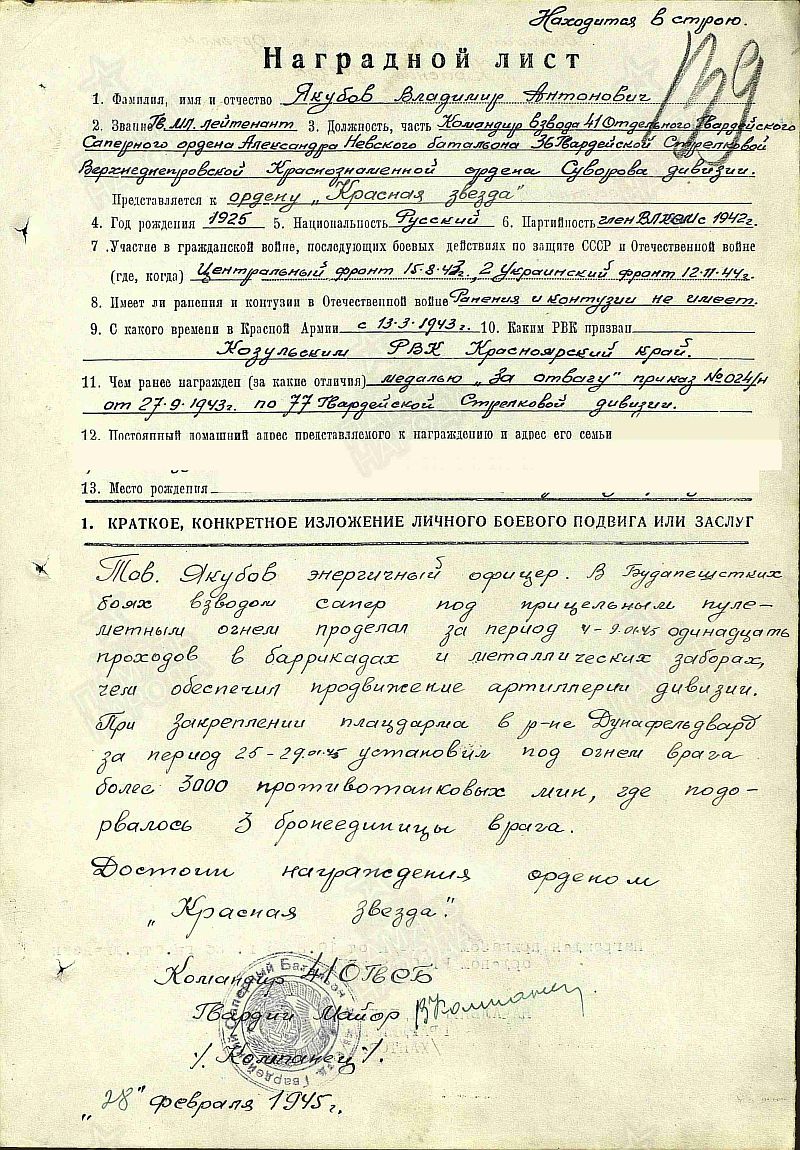 Находится в строю.
139
Наградной лист
1. Фамилия, имя и отчество Якубов Владимир Антонович
2. Звание Гв. мл. лейтенант 3. Должность, часть Командир взвода 41 Отдельного Гвардейского
Саперного ордена Александра Невского батальона 36 Гвардейской Стрелковой
Верхнеднепровской Краснознаменной ордена Суворова дивизии.
Представляется к ордену „Красная звезда"
4. Год рождения 1925 5. Национальность Русский 6. Партийность член ВЛКСМ с 1942г.
7. Участие в гражданской войне, последующих боевых действиях по защите СССР и Отечественной войне
(где, когда) Центральный фронт 15.8.43г., 2 Украинский фронт 12.11.44г.
8. Имеет ли ранения и контузии в Отечественной войне Ранения и контузии не имеет.
9. С какого времени в Красной Армии с 13.3.1943г. 10. Каким РВК призван
Козульским РВК Красноярский край.
11. Чем ранее награжден (за какие отличия) медалью „За отвагу" приказ №024/н
от 27.9.1943г. по 77 Гвардейской Стрелковой дивизии.
12. Постоянный домашний адрес представляемого к награждению и адрес его семьи
13. Место рождения
1. КРАТКОЕ, КОНКРЕТНОЕ ИЗЛОЖЕНИЕ ЛИЧНОГО БОЕВОГО ПОДВИГА ИЛИ ЗАСЛУГ
Тов. Якубов энергичный офицер. В Будапештких
боях взводом сапер под прицельным пуле-
метным огнем проделал за период 4-9.01.45 одинадцать
проходов в баррикадах и металлических заборах,
чем обеспечил продвижение артиллерии дивизии.
При закреплении плацдарма в р-не Дунафельдвард
за период 25-29.01.45 установил под огнем врага
более 3000 противотанковых мин, где подо-
рвалось 3 бронеединицы врага.
Достоин награждения орденом
„Красная звезда".
Командир 41 ОГвСБ
Гвардии Майор ВКомпанец
/. Компанец /.
„28" февраля 1945г.